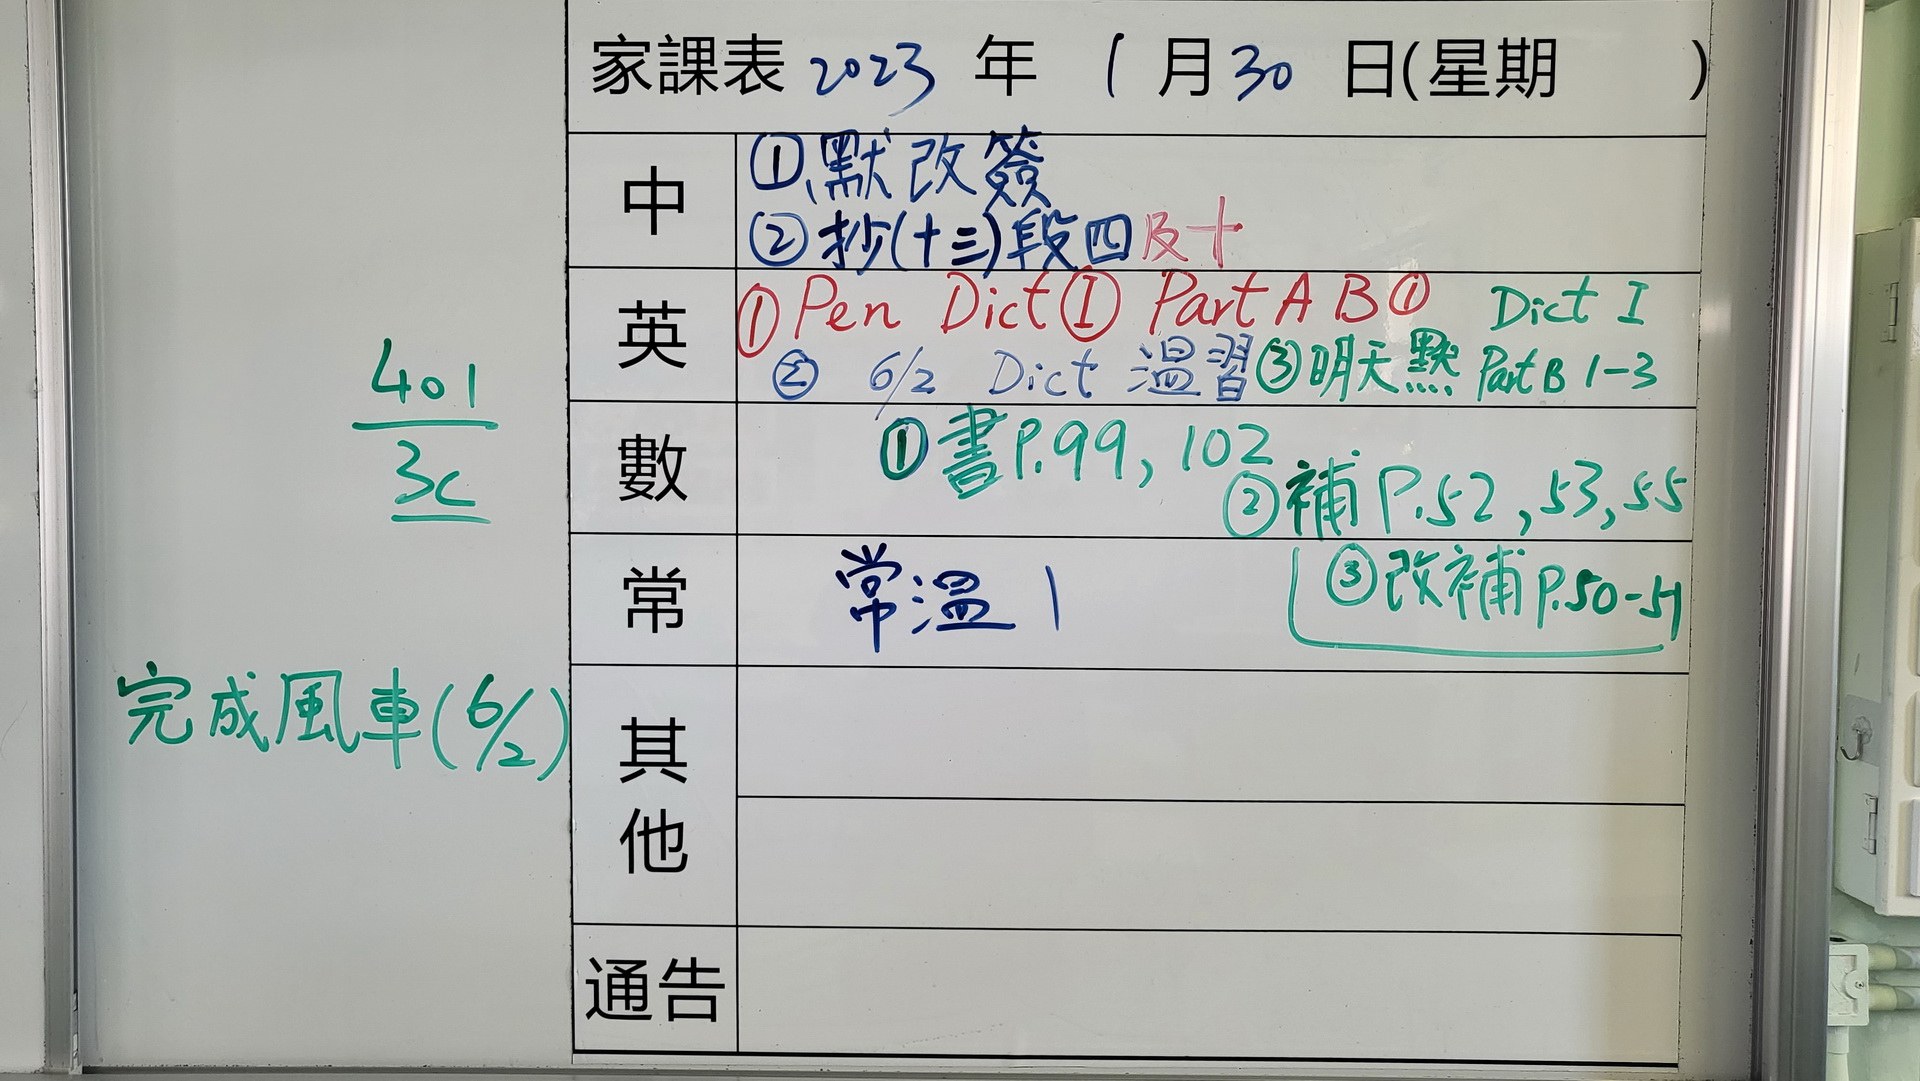 家課表 2023 年 1 月 30 日(星期 )
中
①默改簽
②抄(十三)段四及十
英
①Pen Dict① Part A B① Dict I
② 6/2 Dict 溫習③明天默 Part B 1-3
數
①書P.99, 102
②補P.52, 53, 55
③改補P.50-51
常
常溫1
其他
通告
401
3C
完成風車(6/2)